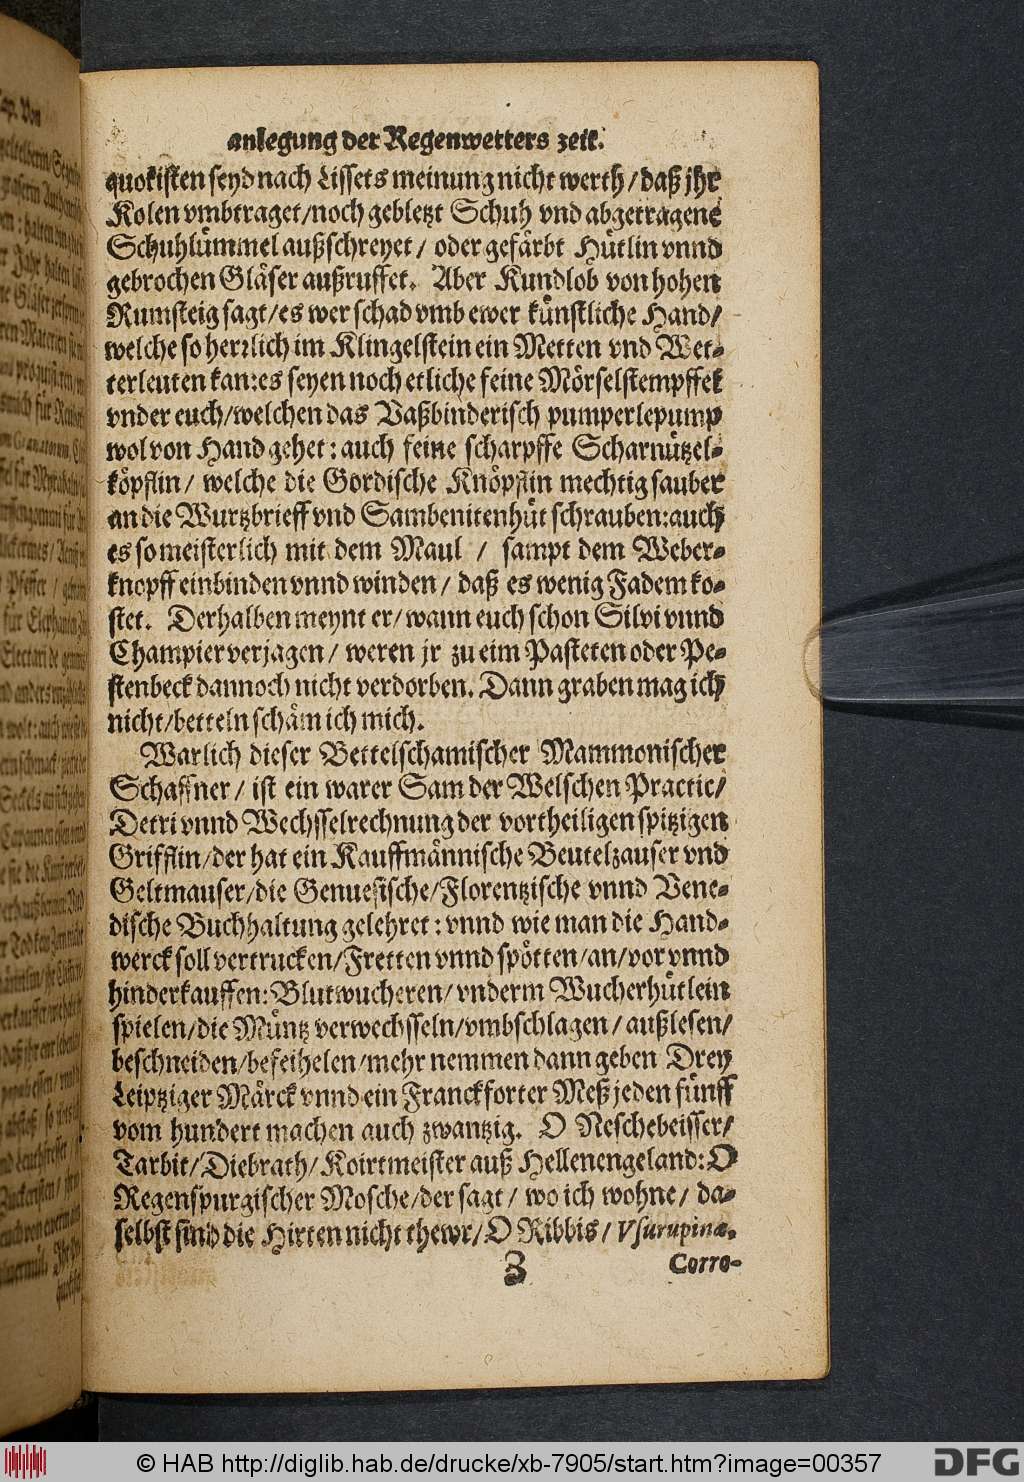 anlegung der Regenwetters zeit.
quokisten seyd nach Lissets meinung nicht werth / daß jhr
Kolen vmbtraget / noch gebletzt Schuh vnd abgetragene
Schuhlümmel außschreyet / oder gefärbt Hütlin vnnd
gebrochen Gläser außruffet. Aber Kundlob von hohen
Rumsteig sagt / es wer schad vmb ewer künstliche Hand /
welche so herrlich im Klingelstein ein Metten vnd Wet-
terleuten kan: es seyen noch etliche feine Mörselstempffel
vnder euch / welchen das Vaßbinderisch pumperlepump
wol von Hand gehet : auch feine scharpffe Scharnützel-
köpflin / welche die Gordische Knöpflin mechtig sauber
an die Wurtzbrieff vnd Sambenitenhüt schrauben: auch
es so meisterlich mit dem Maul / sampt dem Weber-
knopff einbinden vnnd winden / daß es wenig Fadem ko-
stet. Derhalben meynt er / wann euch schon Silvi vnnd
Champier verjagen / weren jr zu eim Pasteten oder Pe-
stenbeck dannoch nicht verdorben. Dann graben mag ich
nicht / betteln schäm ich mich.
Warlich dieser Bettelschamischer Mammonischer
Schaffner / ist ein warer Sam der Welschen Practic /
Detri vnnd Wechsselrechnung der vortheiligen spitzigen
Grifflin / der hat ein Kauffmännische Beutelzauser vnd
Geltmauser / die Genuesische / Florentzische vnnd Vene-
dische Buchhaltung gelehret : vnnd wie man die Hand-
werck soll vertrucken / Fretten vnnd spötten / an / vor vnnd
hinderkauffen: Blutwucheren / vnderm Wucherhütlein
spielen / die Müntz verwechsseln / vmbschlagen / außlesen /
beschneiden / befeihelen / mehr nemmen dann geben Drey
Leiptziger Märck vnnd ein Franckforter Meß jeden fünff
vom hundert machen auch zwantzig. O Neschebeisser /
Tarbit / Diebrath / Koirtmeister auß Hellenengeland: O
Regenspurgischer Mosche / der sagt / wo ich wohne / da-
selbst sind die Hirten nicht thewr / O Ribbis / Vsurupinæ.
Z
Corro-
© HAB http://diglib.hab.de/drucke/xb-7905/start.htm?image=00357
DFG